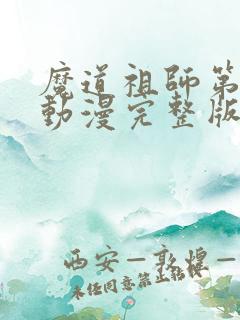 魔道祖師第
動漫完整版
西安—敦煌—
未经同意禁止转载